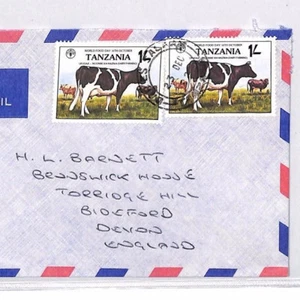 WORLD FOOD DAY 16TH OCTOBER
TANZANIA 1/-
TANZANIA 1/-
IL
H. L. BARNETT
BRUNSWICK HOUSE
TORRIDGE HILL
BIDEFORD
DEVON
ENGLAND